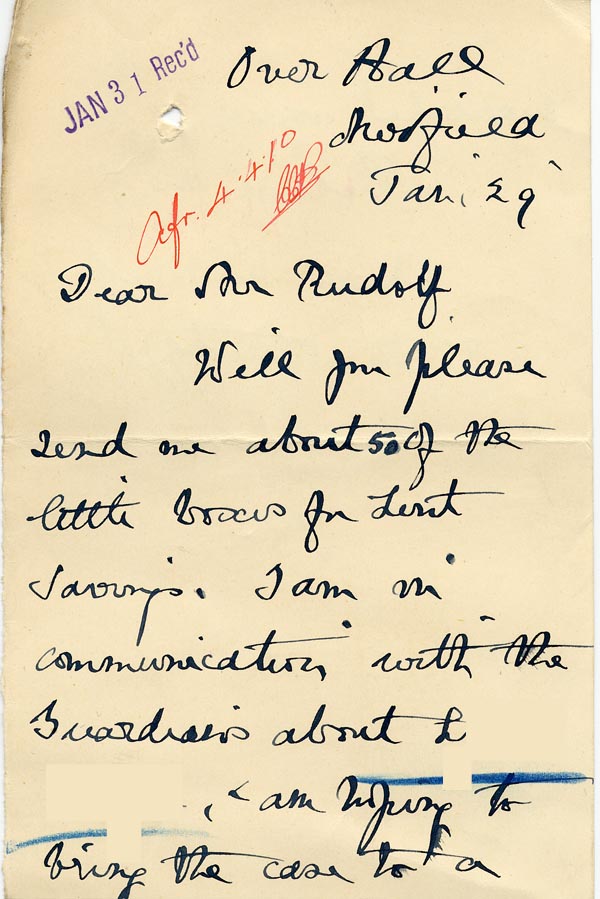 JAN 31 Rec'd
Over Hall
Mayfield
Jan. 29
Afr. 4.4.10
Dear Mr Rudolf
Will you please
send me about 50 of the
little boxes for Lent
Savings. I am in
communication with the
Guardians about L
, & am hoping to
bring the case to a